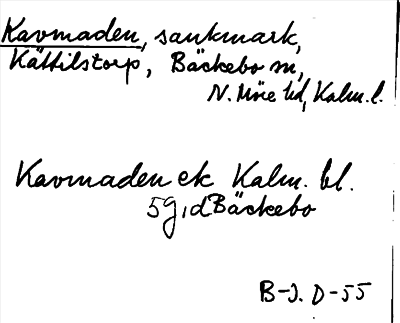 Kavmaden, sankmark,
Kättilstorp, Bäckebo sn,
N. Möre hd, Kalm. l.
Kavmaden ek Kalm. bl.
5g, d Bäckebo
B-J. D-55